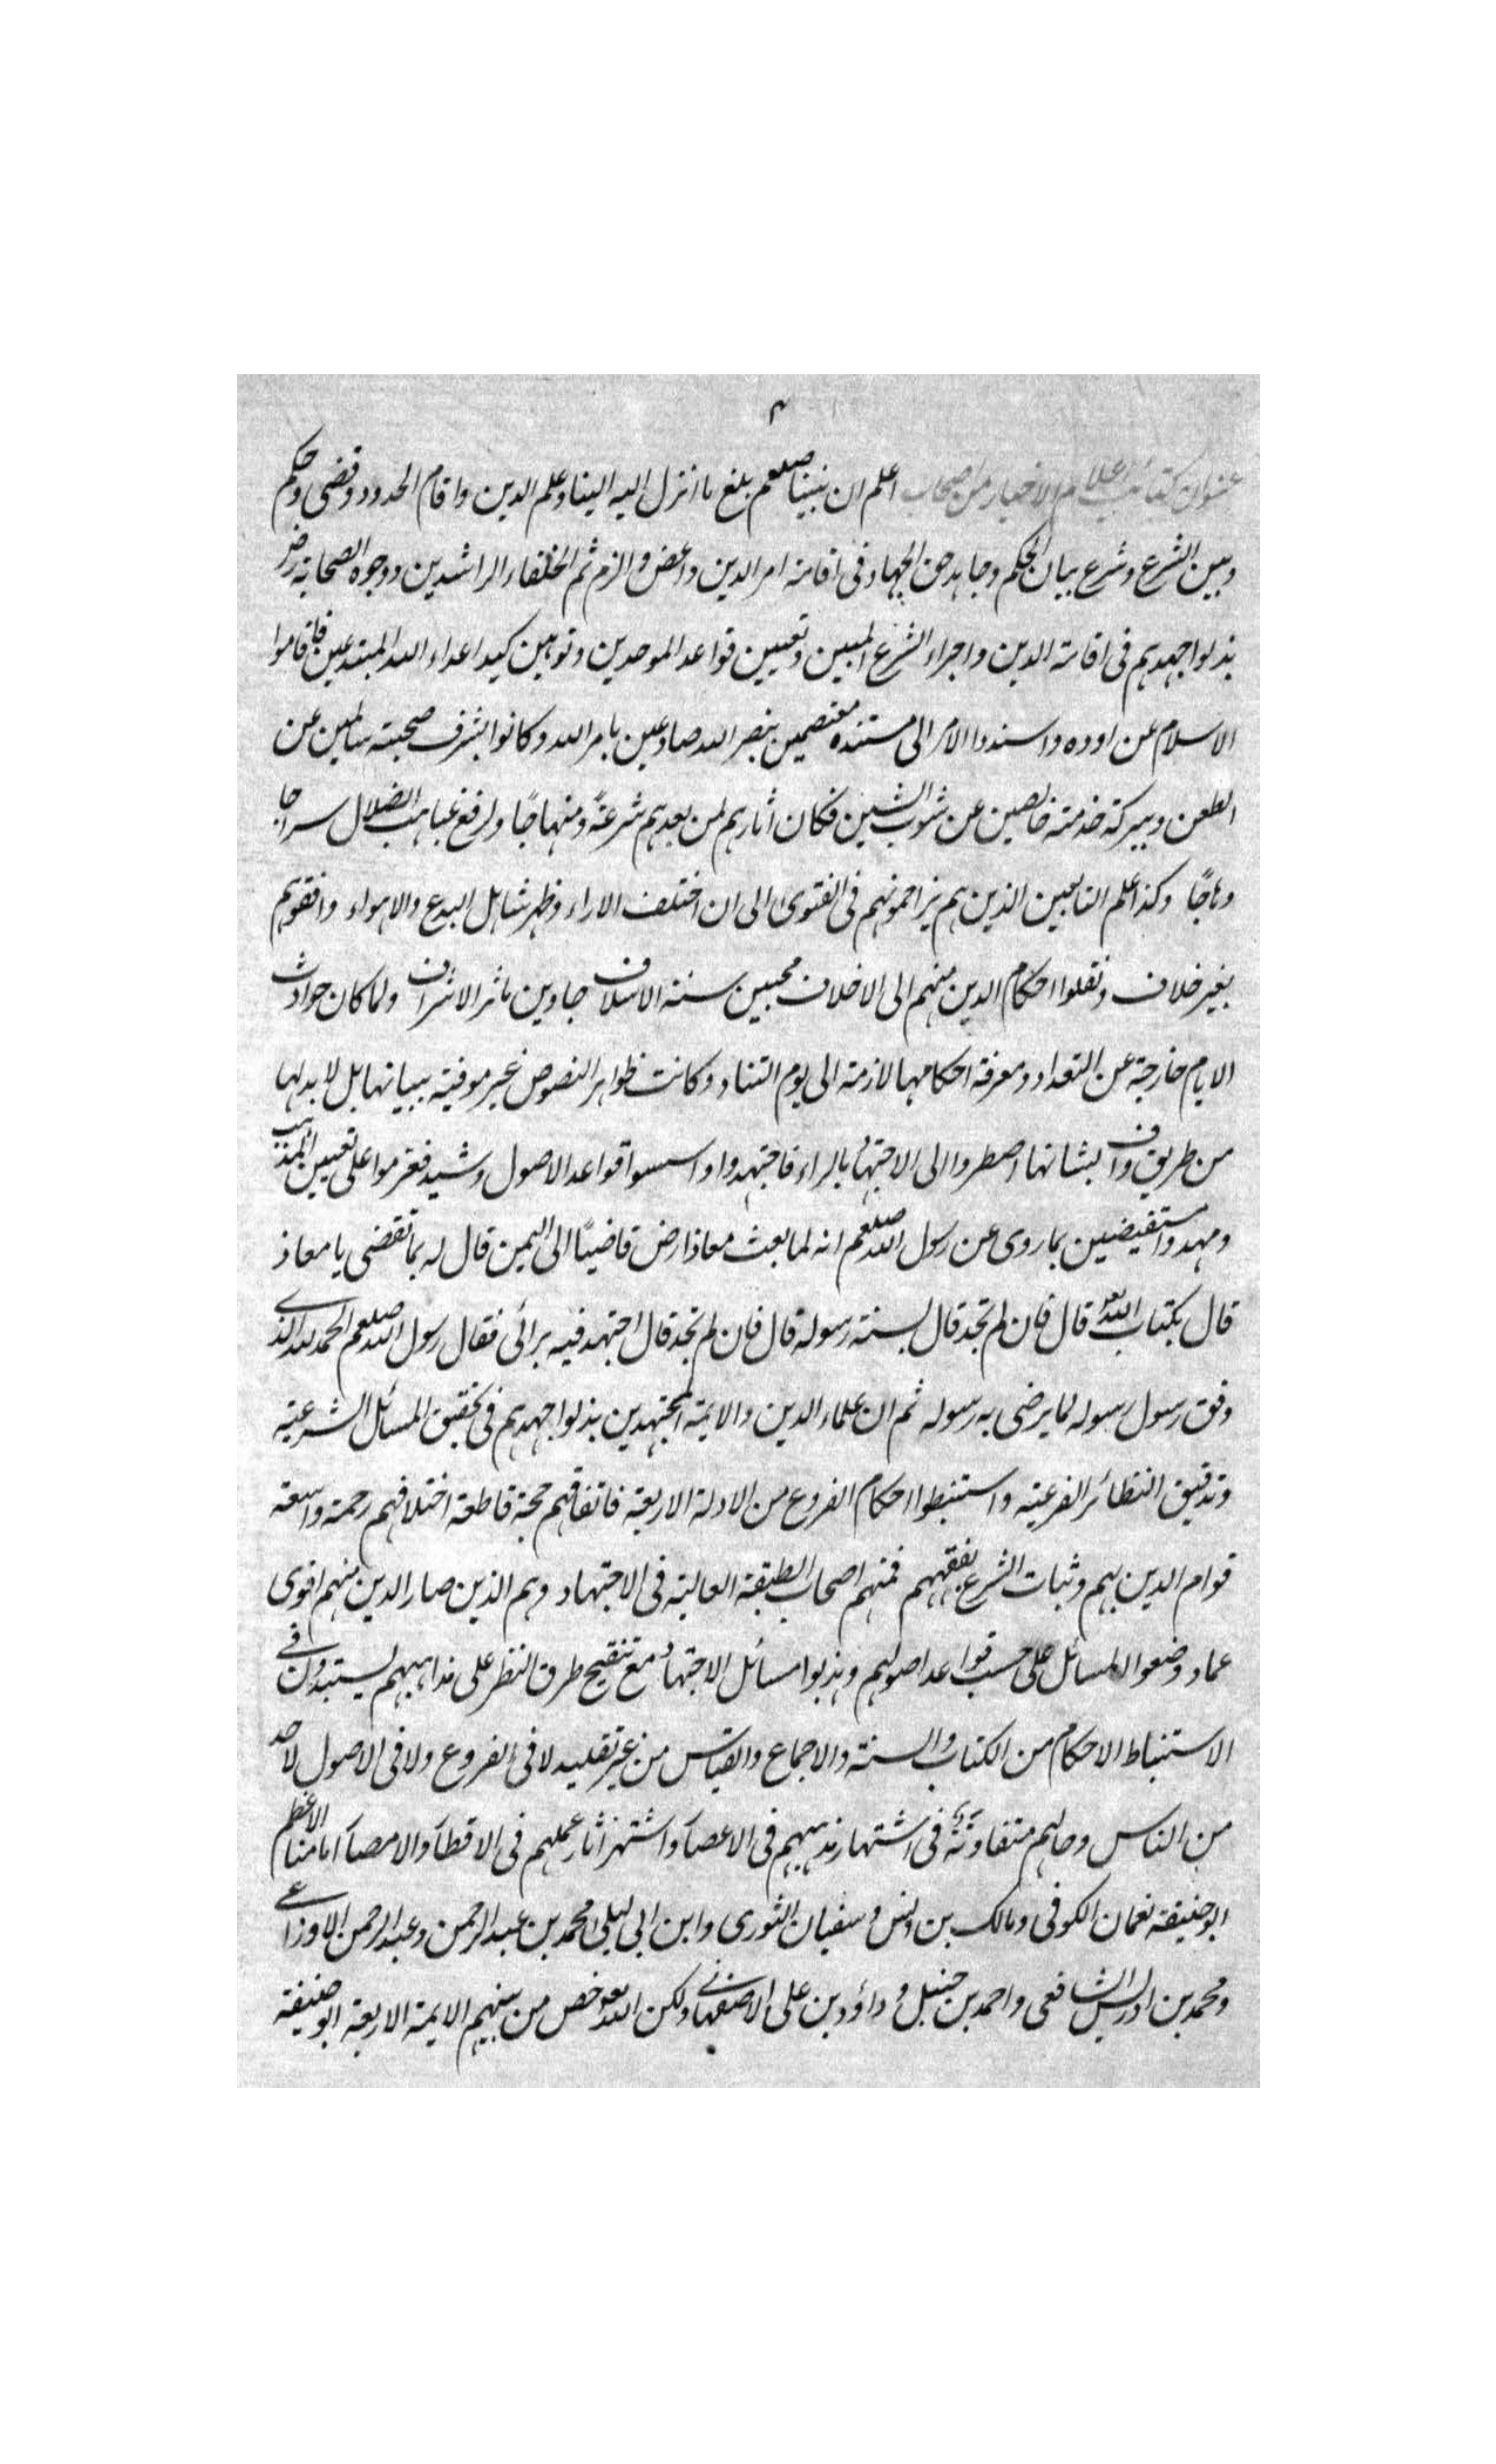 ٢
عنوان كتائب اعلام الاخيار من اصحاب اعلم ان نبينا صلعم بلغ ما انزل اليه الينا وعلم الدين واقام الحدود وقضى وحكم
وبين الشرع وشرع بيان الحكم وجاهد حق الجهاد فى اقامة امر الدين والزم ثم الخلفاء الراشدين ووجوه الصحابة رض
بذلوا جهدهم فى اقامة الدين واجراء الشرع المبين وتعيين قواعد الموحدين وتوهين كيد اعداء الله المبتدعين فاقاموا
الاسلام عن اوده واسندوا الامر الى مستنده معتصمين بنصر الله صادعين بامر الله وكانوا بشرف صحبته سالمين عن
الطعن وببركة خدمته خالصين عن شوب الشين فكان اثارهم لمن بعدهم شرعةً ومنهاجًا ولرفع غياهب الضلال سراجا
وهاجًا وكذا علم التابعين الذين هم يزاحمونهم فى الفتوى الى ان اختلف الاراء وظهر البدع والاهواء وافقوهم
بغير خلاف ونقلوا احكام الدين منهم الى الاخلاف محيين سنة الاسلاف حاوين مآثر الاشراف ولما كان حوادث
الايام خارجة عن التعداد ومعرفة احكامها لازمة الى يوم التناد وكانت ظواهر النصوص غير موفية ببيانها بل لا بد لها
من طريق واف بشانها اضطروا الى الاجتهاد بالراء فاجتهدوا واسسوا قواعد الاصول وشيد فعزموا على تعيين المذهب
ومهدوا مستفيضين بما روى عن رسول الله صلعم انه لما بعث معاذا رض قاضيًا الى اليمن قال له بما تقضى يا معاذ
قال بكتاب الله تعه قال فان لم تجد قال بسنة رسوله قال فان لم تجد قال اجتهد فيه برائى فقال رسول الله صلعم الحمد لله الذى
وفق رسول رسوله لما يرضى به رسوله ثم ان علماء الدين والايمة المجتهدين بذلوا جهدهم فى تحقيق المسائل الشرعية
وتدقيق النظائر الفرعية واستنبطوا احكام الفروع من الادلة الاربعة فاتفاقهم حجة قاطعة اختلافهم رحمة واسعة
قوام الدين بهم وثبات الشرع بفقههم فمنهم اصحاب الطبقة العالية فى الاجتهاد وهم الذين صار الدين منهم اقوى
عماد وضعوا المسائل على حسب قواعد اصولهم وهذبوا مسائل الاجتهاد مع تنقيح طرق النظر على مذاهبهم يستبدون فى
الاستنباط الاحكام من الكتاب والسنة والاجماع والقياس من غير تقليد لا فى الفروع ولا فى الاصول لاحد
من الناس وحالهم متفاوتة فى اشتهار مذهبهم فى الاعصار واشتهر اثار عملهم فى الاقطار والامصار امامنا الاعظم
ابو حنيفة نعمان الكوفى ومالك بن انس وسفيان الثورى وابن ابى ليلى محمد بن عبد الرحمن وعبد الرحمن الاوزاعى
ومحمد بن ادريس الشافعى واحمد بن حنبل وداؤد بن على الاصفهانى ولكن الله تعه خص من بينهم الايمة الاربعة ابو حنيفة